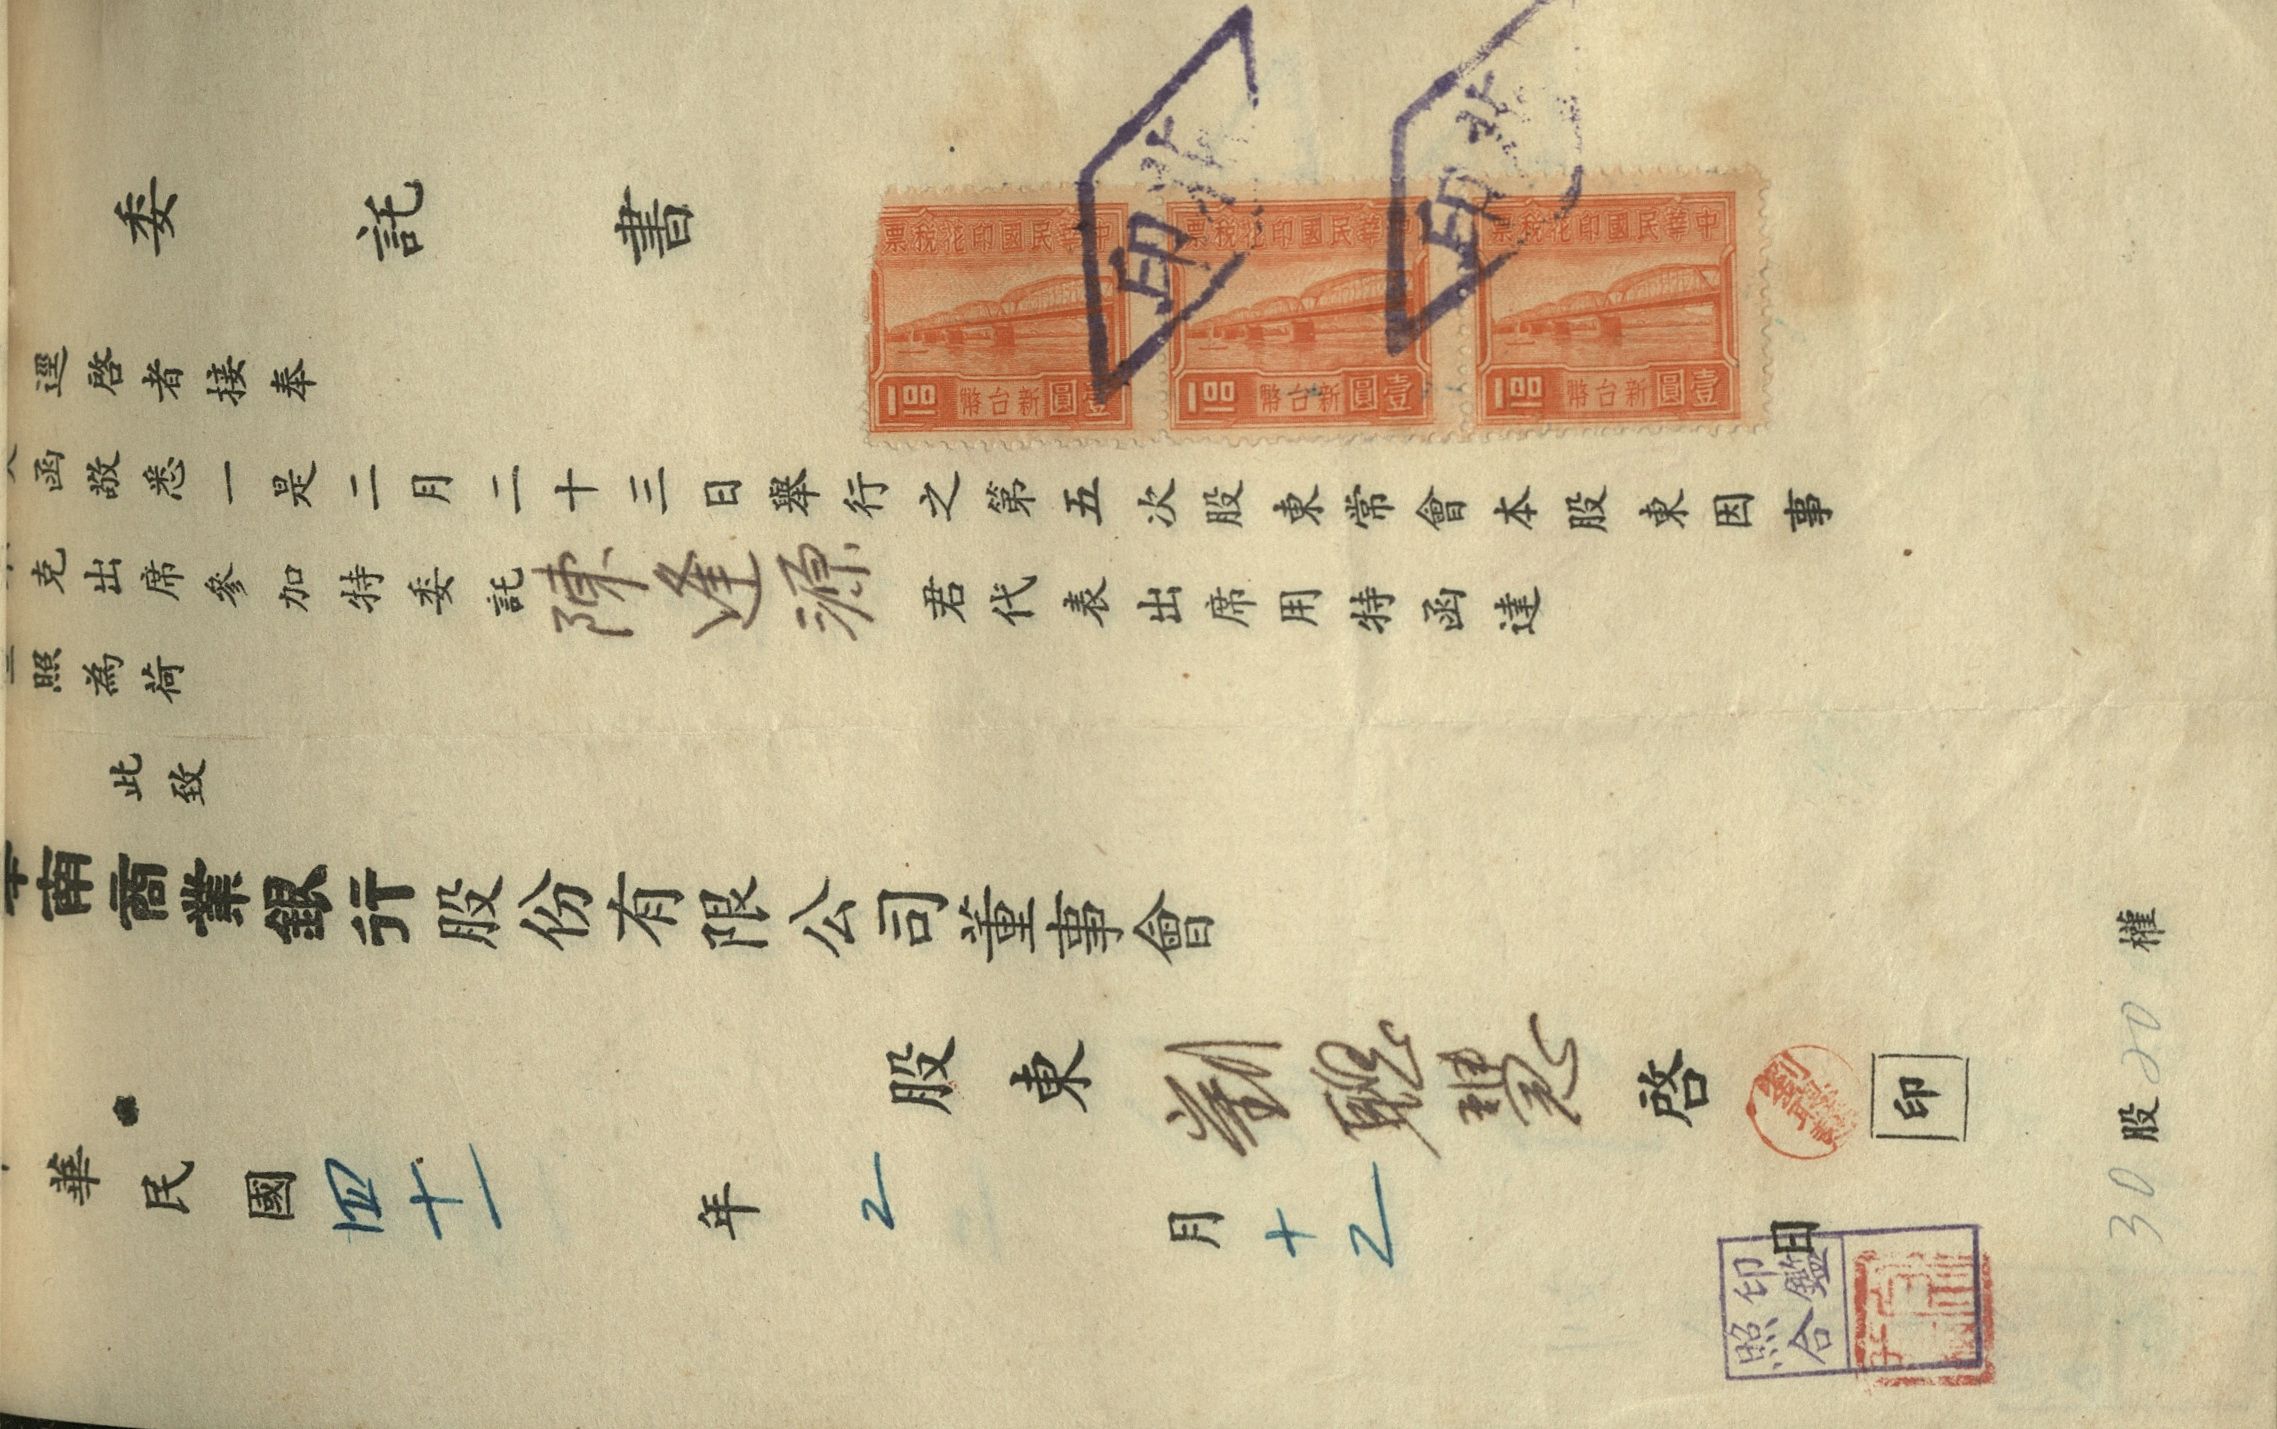 委託書
逕啓者接奉
函敬悉一是二月二十三日舉行之第五次股東常會本股東因事
克出席參加特委託陳逢源君代表出席用特函達
照為荷
此致
南商業銀行股份有限公司董事會
股東劉聰慧啓
印
華民國四十一年2月十2日
30股20權
中華民國印花稅票
壹圓新台幣
100
中華民國印花稅票
壹圓新台幣
100
中華民國印花稅票
壹圓新台幣
100
印
印
印鑑
照合